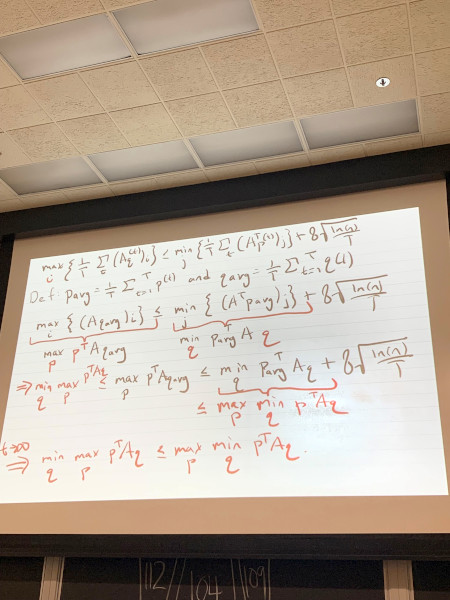 max_i { 1/T Σ_t (Aq^(t))_i } ≤ min_j { 1/T Σ_t (A^T p^(t))_j } + 8√(ln(n)/T)
Def: p_avg = 1/T Σ_{t=1}^T p^(t) and q_avg = 1/T Σ_{t=1}^T q^(t)
max_i { (Aq_avg)_i } ≤ min_j { (A^T p_avg)_j } + 8√(ln(n)/T)
max_p p^T A q_avg    min_q p_avg^T A q
⇒ min_q max_p p^T A q ≤ max_p p^T A q_avg ≤ min_q p_avg^T A q + 8√(ln(n)/T)
≤ max_p min_q p^T A q
t→∞ ⇒ min_q max_p p^T A q ≤ max_p min_q p^T A q.
112 // 104 109